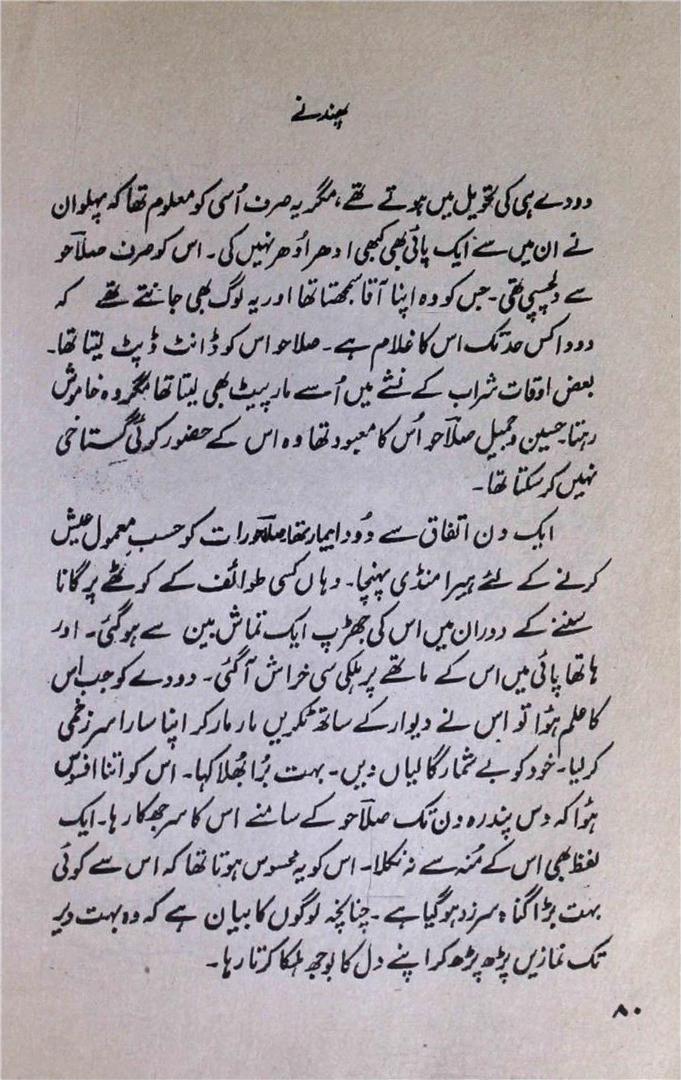 پھندنے
دودے ہی کی تحویل میں ہوتے تھے، مگر یہ صرف اُسی کو معلوم تھا کہ پہلوان
نے ان میں سے ایک پائی بھی کبھی ادھر اُدھر نہیں کی۔ اس کو صرف صلاحو
سے دلچسپی تھی۔ جس کو وہ اپنا آقا سمجھتا تھا اور یہ لوگ بھی جانتے تھے کہ
دودا کس حد تک اس کا غلام ہے۔ صلاحو اس کو ڈانٹ ڈپٹ لیتا تھا۔
بعض اوقات شراب کے نشے میں اُسے مار پیٹ بھی لیتا تھا مگر وہ خاموش
رہتا۔ حسین و جمیل صلاحو اُس کا معبود تھا وہ اس کے حضور کوئی گستاخی
نہیں کر سکتا تھا۔
ایک دن اتفاق سے دُودا بیمار تھا صلاحو رات کو حسبِ معمول عیش
کرنے کے لئے ہیرا منڈی پہنچا۔ وہاں کسی طوائف کے کوٹھے پر گانا
سننے کے دوران میں اس کی جھڑپ ایک تماش بین سے ہو گئی۔ اور
ہاتھا پائی میں اس کے ماتھے پر ہلکی سی خراش آ گئی۔ دودے کو جب اس
کا علم ہؤا تو اس نے دیوار کے ساتھ ٹکریں مار مار کر اپنا سارا سر زخمی
کر لیا۔ خود کو بے شمار گالیاں دیں۔ بہت بُرا بھلا کہا۔ اس کو اتنا افسوس
ہؤا کہ دس پندرہ دن تک صلاحو کے سامنے اس کا سر جھکا رہا۔ ایک
لفظ بھی اس کے مُنہ سے نہ نکلا۔ اس کو یہ محسوس ہوتا تھا کہ اس سے کوئی
بہت بڑا گناہ سرزد ہو گیا ہے۔ چنانچہ لوگوں کا بیان ہے کہ وہ بہت دیر
تک نمازیں پڑھ پڑھ کر اپنے دل کا بوجھ ہلکا کرتا رہا۔
۸۰